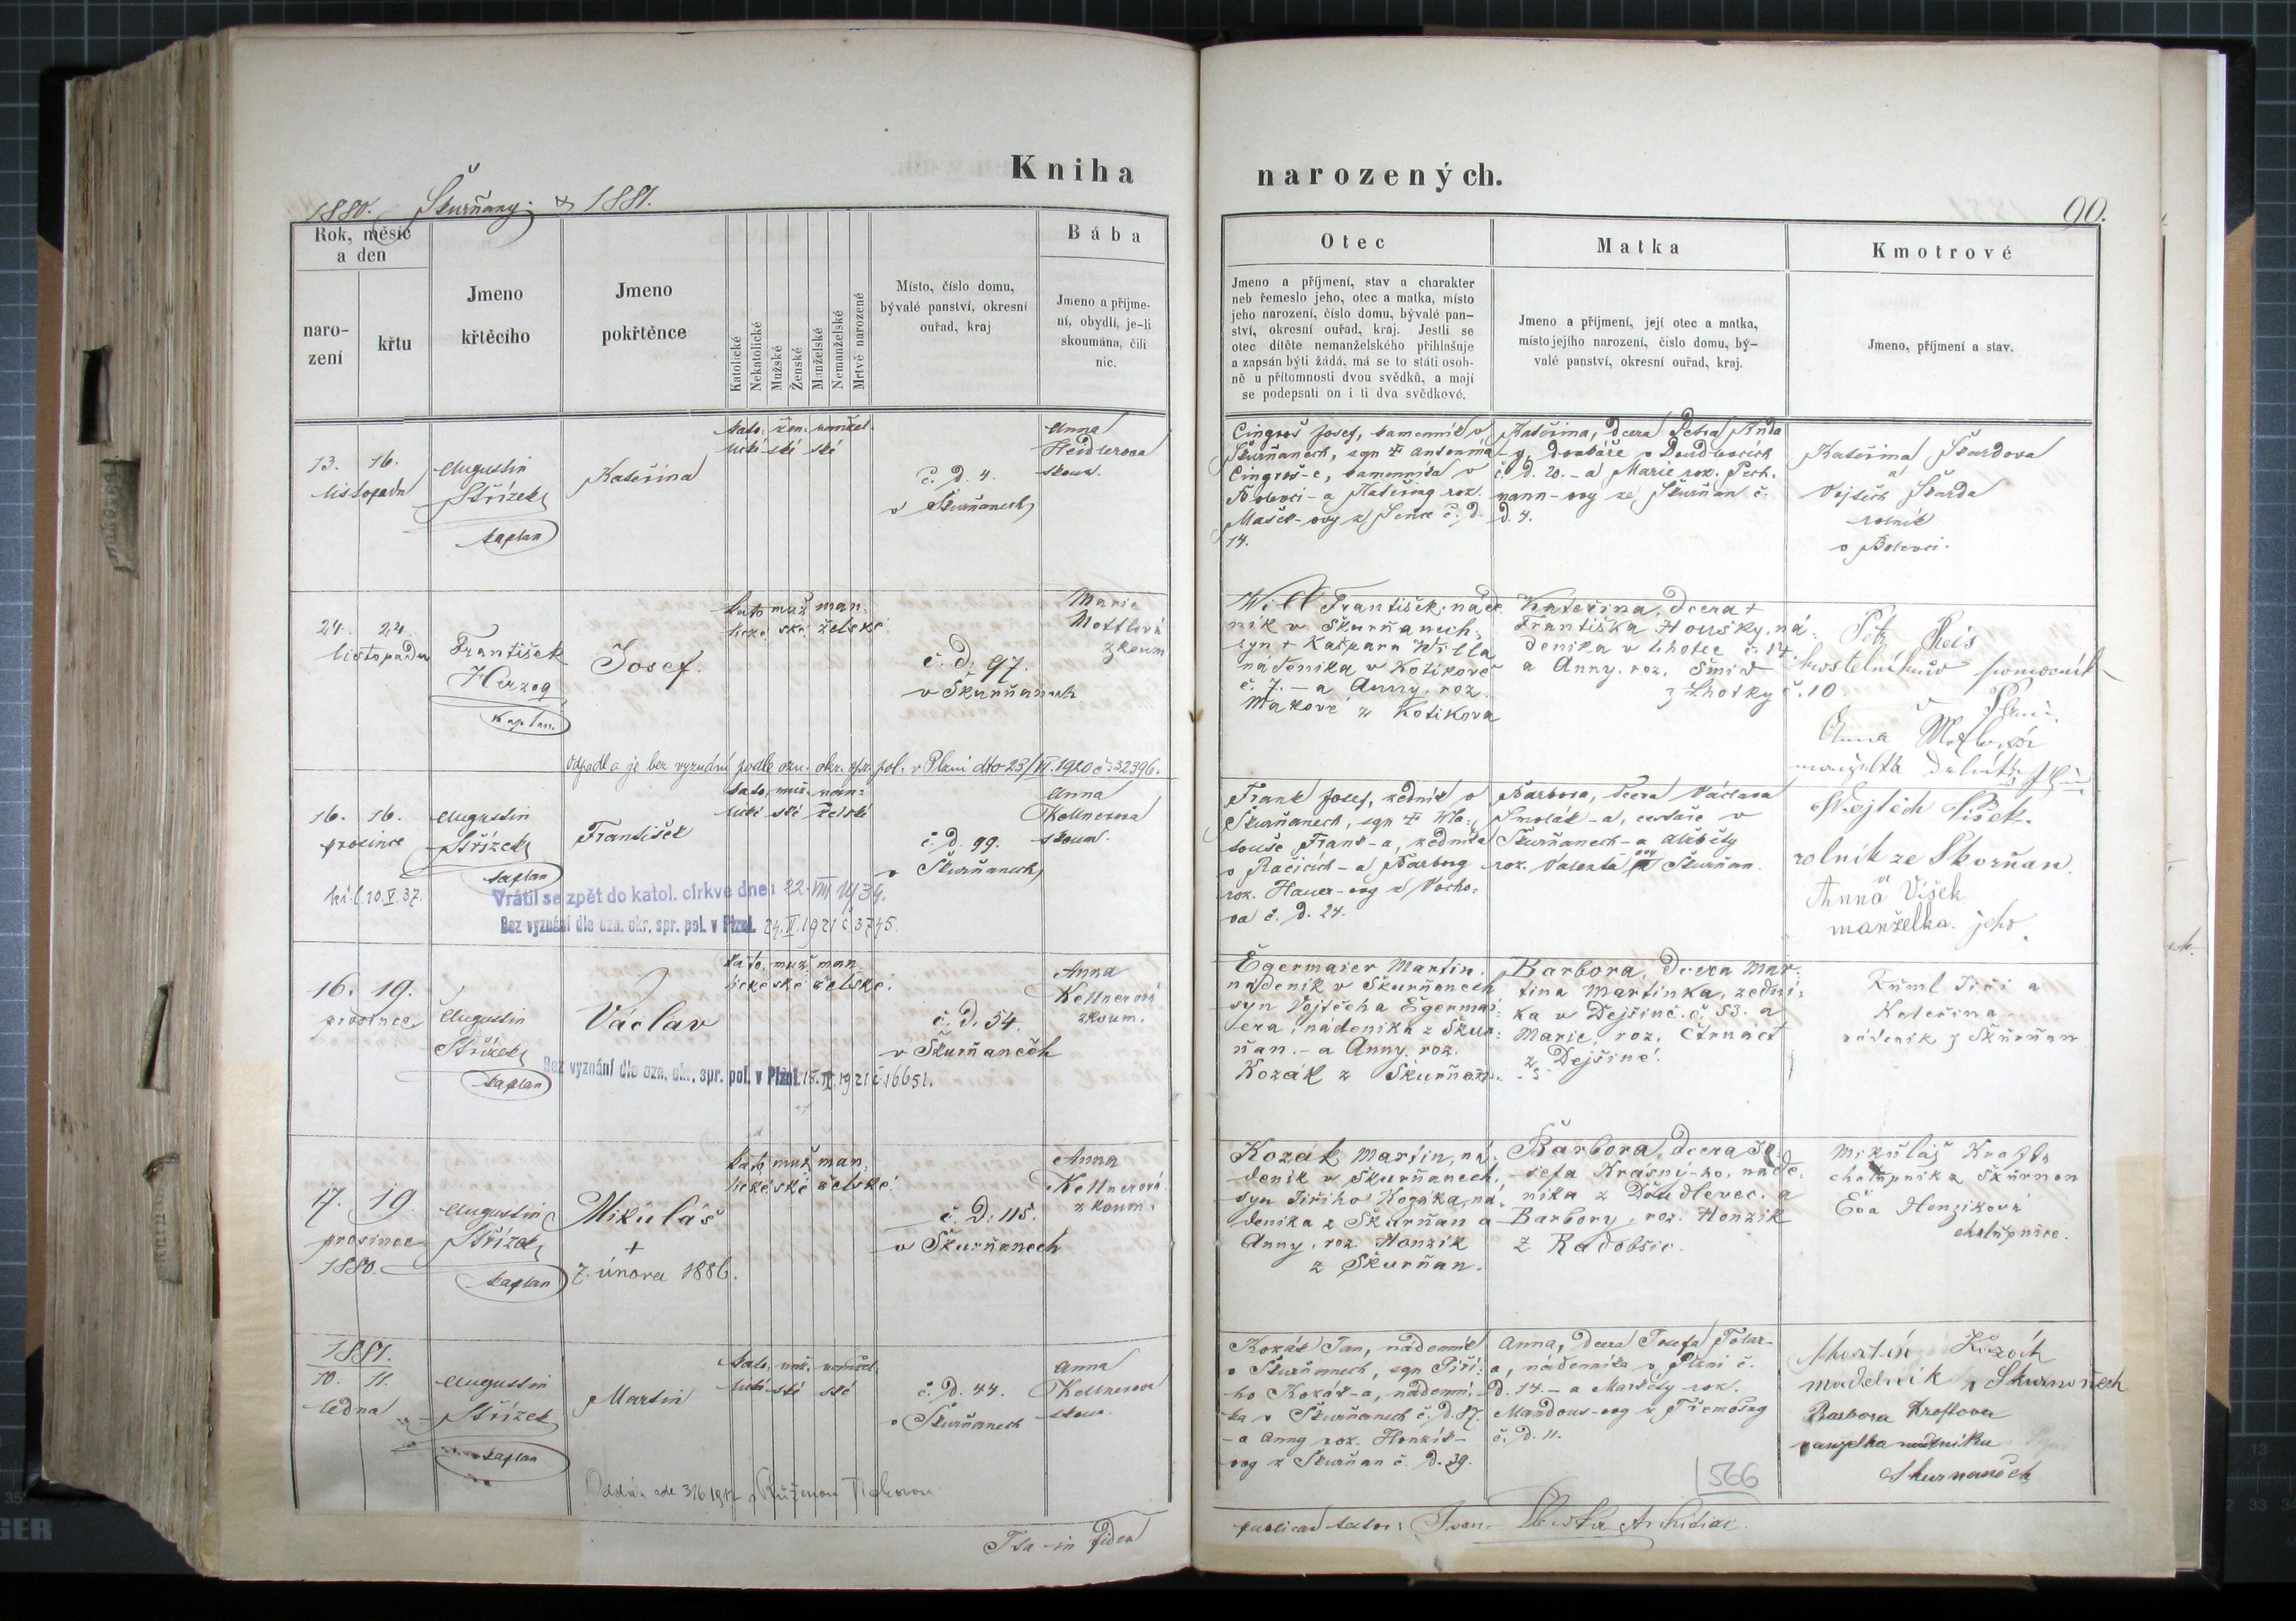 Kniha narozených.
1880. Škurňany. & 1881.
90.
Rok, měsíc
a den
naro-
zení
křtu
Jmeno
křtěcího
Jmeno
pokřtěnce
Katolické
Nekatolické
Mužské
Ženské
Manželské
Nemanželské
Mrtvě narozené
Místo, číslo domu,
bývalé panství, okresní
ouřad, kraj
Bába
Jmeno a příjme-
ní, obydlí, je-li
skoumána, čili
nic.
Otec
Jmeno a příjmení, stav a charakter
neb řemeslo jeho, otec a matka, místo
jeho narození, číslo domu, bývalé pan-
ství, okresní ouřad, kraj. Jestli se
otec dítěte nemanželského přihlašuje
a zapsán býti žádá, má se to státi osob-
ně u přítomnosti dvou svědků, a mají
se podepsati on i ti dva svědkové.
Matka
Jmeno a příjmení, její otec a matka,
místo jejího narození, číslo domu, bý-
valé panství, okresní ouřad, kraj.
Kmotrové
Jmeno, příjmení a stav.
13. 16.
listopadu
Augustin
Střízek
kaplan
Kateřina
č. D. 4.
v Škurňanech
Anna
Heidlerova
skoum.
Cingroš Josef, kamenník v
Škurňanech, syn † Antonína
Cingroš-e, kamenníka v
Bolevci - a Kateřiny roz.
14.
Kateřina, dcera Petra
č. D. 20. - a Marie roz.
-ovy ze Škurňan č.
D. 4.
Kateřina Škardova
a
Vojtěch Škarda
rolník
v Bolevci.
24. 24.
listopadu
František
Herzog
kaplan.
Josef.
kato muž man-
lické ské želské
č. d. 97.
v Škurňanech
Marie
Mottlová
zkoum
Will František, náde-
ník v Škurňanech,
syn † Kašpara Willa
nádeníka v Kotikově
č. 7. - a Anny, roz.
Makové z Kotikova
Kateřina, dcera †
Františka Housky, ná-
deníka v Lhotce č. 14.
a Anny, roz. Šmid
z Lhotky č. 10
Petr Reis
pomocník
Anna
Odpadl a je bez vyznání podle ozn. okr. spr. pol. v Plzni dto 23/VI. 1920 č. 32396.
16. 16.
prosince
Augustin
Střízek
kaplan
František
č. D. 99.
v Škurňanech
Anna
Kellnerova
skoum.
Frank Josef, zedník v
Škurňanech, syn † Ma-
touše Frank-a, zedníka
v Račicích - a Barbory
roz. Hauer-ovy z Vocho-
va č. D. 24.
Barbora, dcera Václava
Smolák-a, cestáře v
Škurňanech - a Alžběty
roz. Valenta ovy Škurňan.
Vojtěch Víšek.
rolník ze Škorňan.
a
Anna Víšek
manželka jeho.
10.V.37.
Vrátil se zpět do katol. církve dne: 22. VIII 1939.
Bez vyznání dle ozn. okr. spr. pol. v Plzni. 24.II.1921 č. 3745.
16. 19.
prosince
Augustin
Střízek
kaplan
Václav
kato muž man
lické ské želské.
č. D. 54.
v Škurňanech
Anna
Kellnerová
zkoum.
Egermaier Martin,
nádeník v Škurňanech
syn Vojtěcha Egermai-
era, nádeníka z Škur-
ňan. - a Anny, roz.
Kozák z Škurňan.
Barbora, dcera Mar-
tina Martinka, zední-
ka v Dejšině č. 53. a
Marie, roz. Čtrnáct
z Dejšiné.
Jiří a
Kateřina
nádeník z Škurňan
Bez vyznání dle ozn. okr. spr. pol. v Plzni. 15.IV.1921 č. 16651.
17. 19.
prosince
1880.
Augustin
Střízek
kaplan
Mikuláš
†
7. února 1886.
kato muž man-
lické ské želské.
č. D. 115.
v Škurňanech
Anna
Kellnerová
zkoum.
Kozák Martin, ná-
deník v Škurňanech,
syn Jiřího Kozáka, ná-
deníka z Škurňan a
Anny, roz. Honzik
z Škurňan.
Barbora, dcera Jo-
sefa Krásný-ho, náde-
níka z Doudlevec. a
Barbory, roz. Honzik
z Radobšic.
Mikuláš
chalupník z Škurňan
Eva Honzíková
chalupnice.
1881.
10. 11.
ledna
Augustin
Střízek
kaplan
Martin
č. D. 44.
v Škurňanech
Anna
Kellnerova
skoum.
Kozák Jan, nádenník
v Škurňanech, syn Jiří-
ho Kozák-a, nádenní-
ka v Škurňanech č. D. 87.
- a Anny roz. Honzík-
ovy z Škurňan č. D. 39.
Anna, dcera Josefa Tolar-
a, nádenníka v Plzni č.
D. 14. - a Markéty roz.
Mandous-ovy z Třemošny
č. D. 11.
Martin Kozák
v Škurňanech
Barbora Kroftova
Škurnaněch
566
Oddán zde 3/6 1912 s Růženou Tichovou.
Ita in fidem
Archidiac.